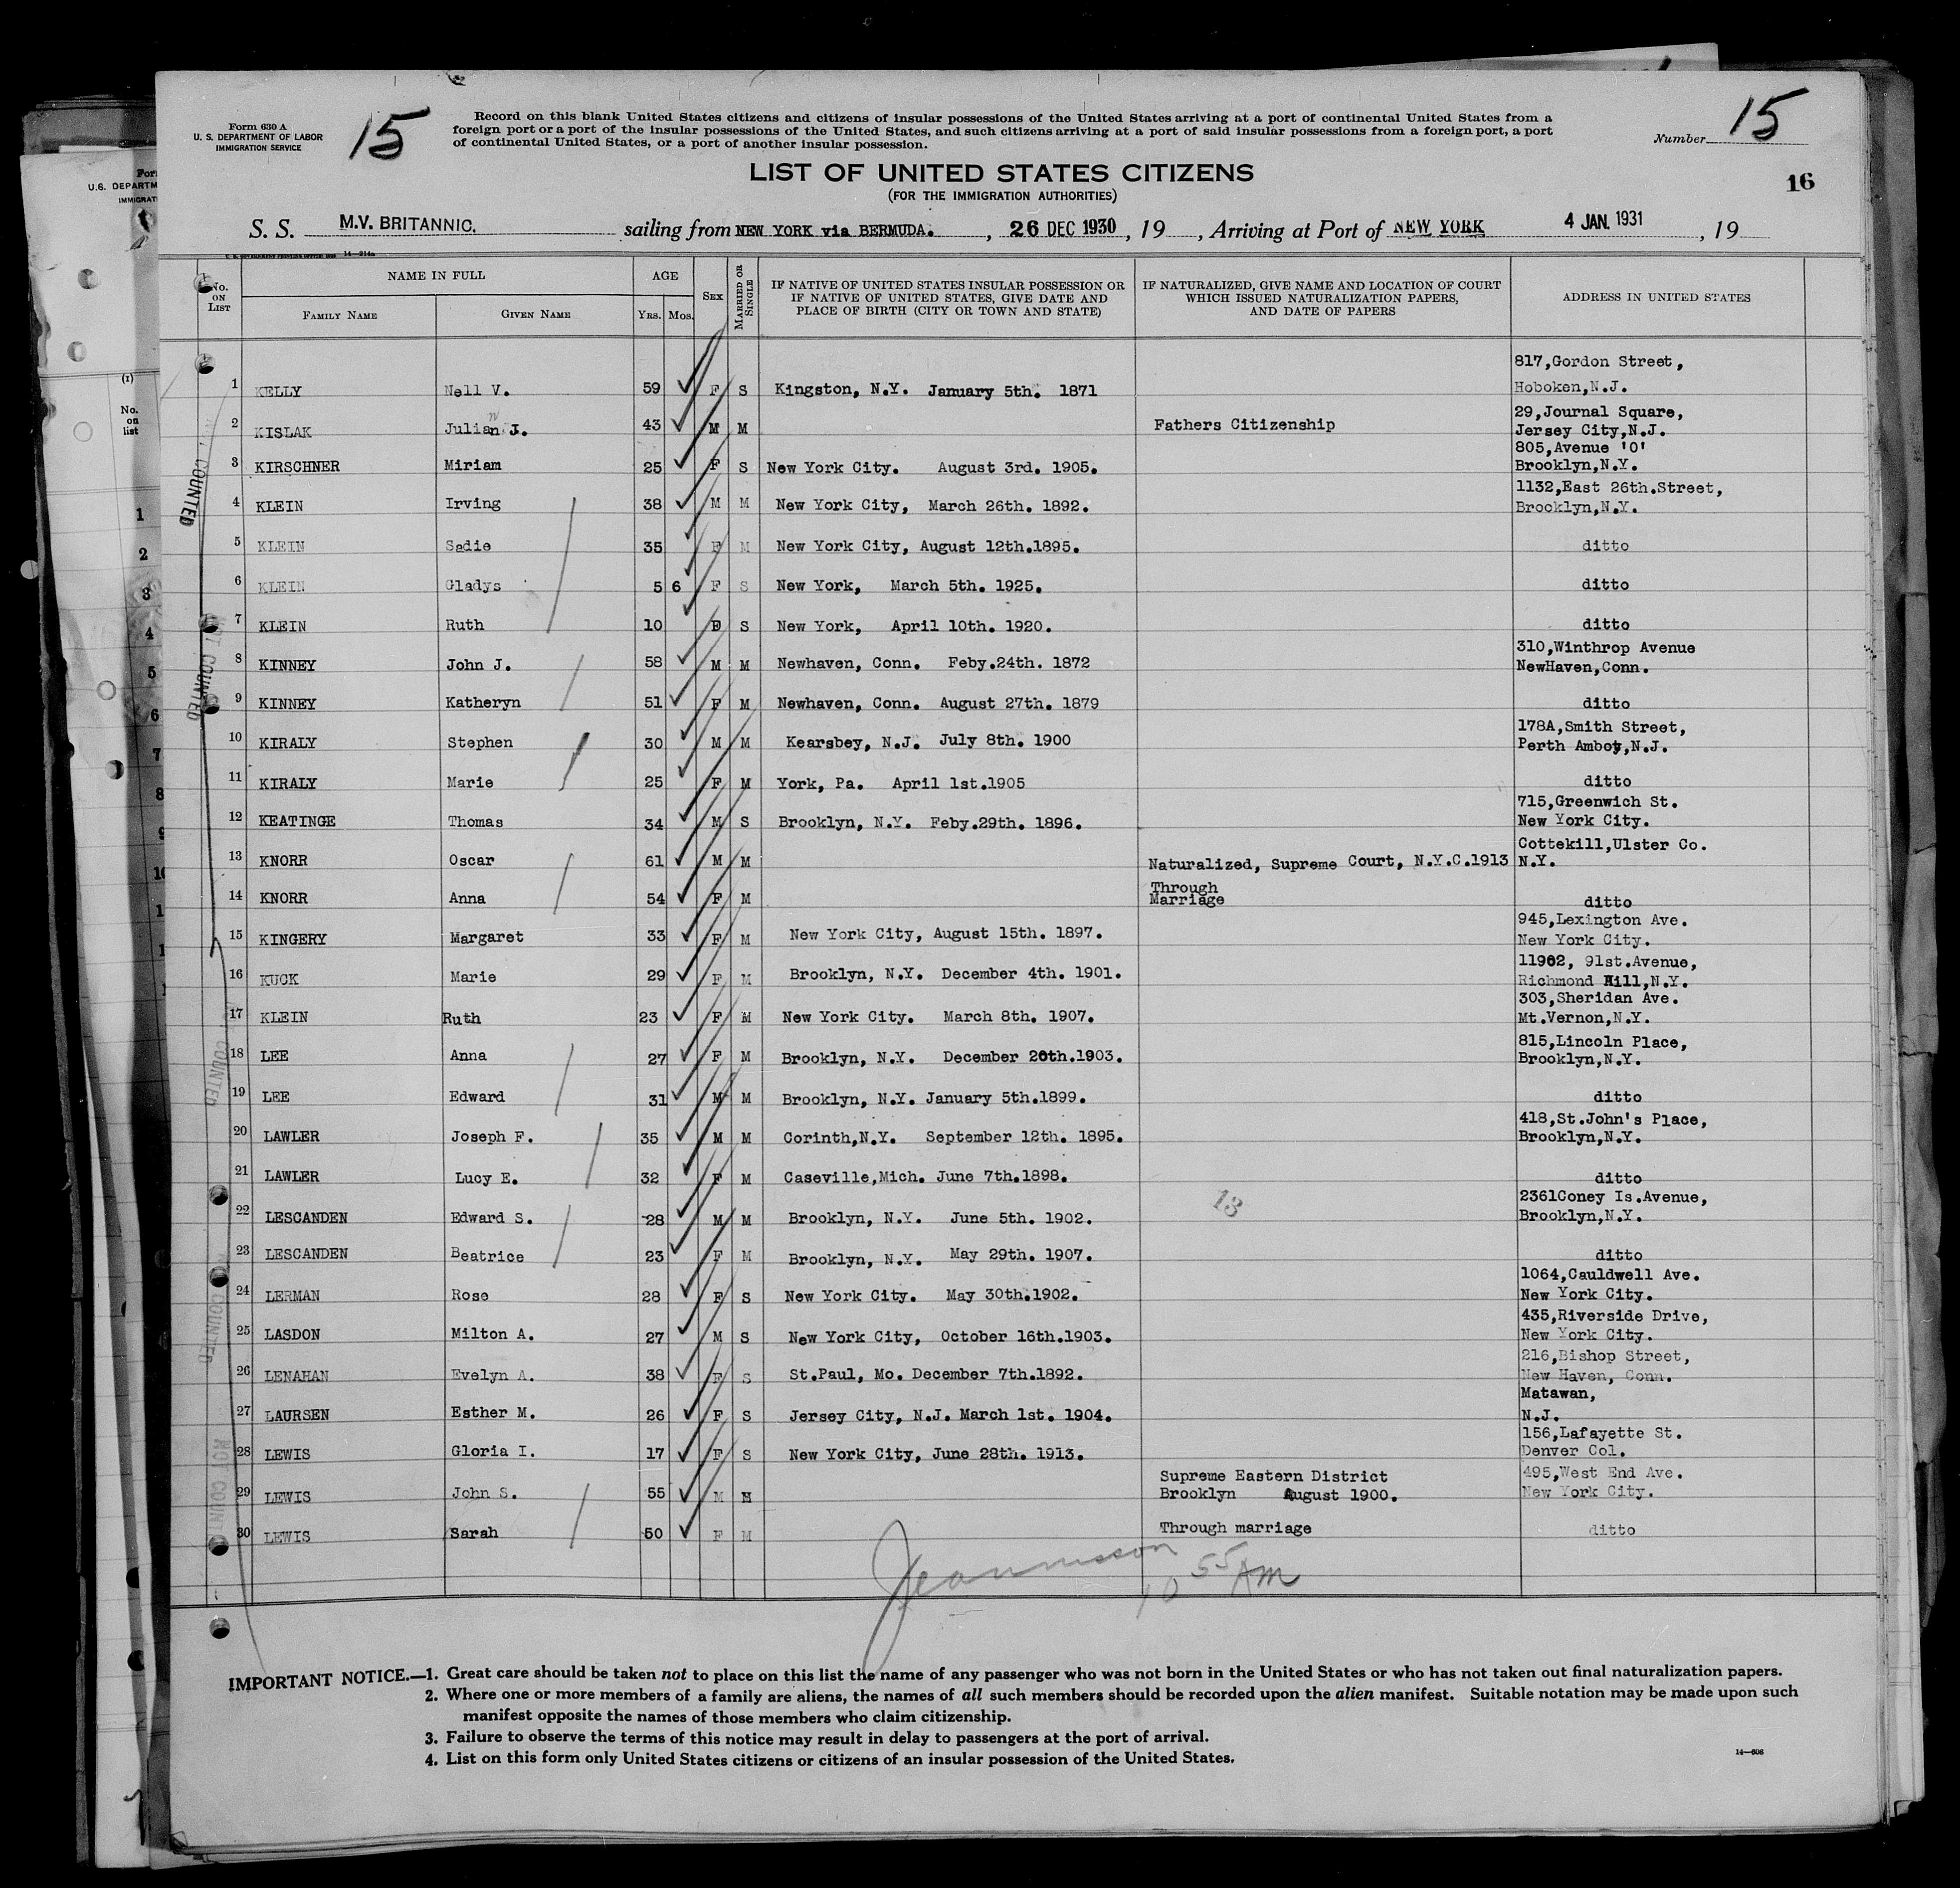 Form 630 A
U. S. DEPARTMENT OF LABOR
IMMIGRATION SERVICE
15
Record on this blank United States citizens and citizens of insular possessions of the United States arriving at a port of continental United States from a
foreign port or a port of the insular possessions of the United States, and such citizens arriving at a port of said insular possessions from a foreign port, a port
of continental United States, or a port of another insular possession.
Number 15
16
LIST OF UNITED STATES CITIZENS
(FOR THE IMMIGRATION AUTHORITIES)
S. S. M.V. BRITANNIC. sailing from NEW YORK via BERMUDA. , 26 DEC 1930 , 19 , Arriving at Port of NEW YORK 4 JAN. 1931 , 19
No. ON LIST NAME IN FULL AGE SEX MARRIED OR SINGLE IF NATIVE OF UNITED STATES INSULAR POSSESSION OR IF NATIVE OF UNITED STATES, GIVE DATE AND PLACE OF BIRTH (CITY OR TOWN AND STATE) IF NATURALIZED, GIVE NAME AND LOCATION OF COURT WHICH ISSUED NATURALIZATION PAPERS, AND DATE OF PAPERS ADDRESS IN UNITED STATES
FAMILY NAME GIVEN NAME YRS. MOS.
1 KELLY Nell V. 59 F S Kingston, N.Y. January 5th. 1871 817,Gordon Street, Hoboken,N.J.
2 KISLAK Julian J. 43 M M Fathers Citizenship 29,Journal Square, Jersey City,N.J.
3 KIRSCHNER Miriam 25 F S New York City. August 3rd. 1905. 805,Avenue '0' Brooklyn,N.Y.
4 KLEIN Irving 38 M M New York City, March 26th. 1892. 1132,East 26th.Street, Brooklyn,N.Y.
5 KLEIN Sadie 35 F M New York City, August 12th.1895. ditto
6 KLEIN Gladys 5 6 F S New York, March 5th. 1925. ditto
7 KLEIN Ruth 10 F S New York, April 10th. 1920. ditto
8 KINNEY John J. 58 M M Newhaven, Conn. Feby.24th. 1872 310,Winthrop Avenue NewHaven,Conn.
9 KINNEY Katheryn 51 F M Newhaven, Conn. August 27th. 1879 ditto
10 KIRALY Stephen 30 M M Kearsbey, N.J. July 8th. 1900 178A,Smith Street, Perth Amboy,N.J.
11 KIRALY Marie 25 F M York, Pa. April 1st.1905 ditto
12 KEATINGE Thomas 34 M S Brooklyn, N.Y. Feby.29th. 1896. 715,Greenwich St. New York City.
13 KNORR Oscar 61 M M Naturalized, Supreme Court, N.Y.C.1913 Cottekill,Ulster Co. N.Y.
14 KNORR Anna 54 F M Through Marriage ditto
15 KINGERY Margaret 33 F M New York City, August 15th. 1897. 945,Lexington Ave. New York City.
16 KUCK Marie 29 F M Brooklyn, N.Y. December 4th. 1901. 11902, 91st.Avenue, Richmond Hill,N.Y.
17 KLEIN Ruth 23 F M New York City. March 8th. 1907. 303,Sheridan Ave. Mt.Vernon,N.Y.
18 LEE Anna 27 F M Brooklyn, N.Y. December 20th.1903. 815,Lincoln Place, Brooklyn,N.Y.
19 LEE Edward 31 M M Brooklyn, N.Y. January 5th.1899. ditto
20 LAWLER Joseph F. 35 M M Corinth,N.Y. September 12th. 1895. 418,St.John's Place, Brooklyn,N.Y.
21 LAWLER Lucy E. 32 F M Caseville,Mich. June 7th.1898. ditto
13
22 LESCANDEN Edward S. 28 M M Brooklyn, N.Y. June 5th. 1902. 2361Coney Is.Avenue, Brooklyn,N.Y.
23 LESCANDEN Beatrice 23 F M Brooklyn, N.Y. May 29th. 1907. ditto
24 LERMAN Rose 28 F S New York City. May 30th.1902. 1064,Cauldwell Ave. New York City.
25 LASDON Milton A. 27 M S New York City, October 16th.1903. 435,Riverside Drive, New York City.
26 LENAHAN Evelyn A. 38 F S St.Paul, Mo. December 7th.1892. 216,Bishop Street, New Haven, Conn.
27 LAURSEN Esther M. 26 F S Jersey City, N.J. March 1st. 1904. Matawan, N.J.
28 LEWIS Gloria I. 17 F S New York City, June 28th. 1913. 156,Lafayette St. Denver Col.
29 LEWIS John S. 55 M M Supreme Eastern District Brooklyn August 1900. 495,West End Ave. New York City.
30 LEWIS Sarah 50 F M Through marriage ditto
10 55 AM
IMPORTANT NOTICE.—1. Great care should be taken not to place on this list the name of any passenger who was not born in the United States or who has not taken out final naturalization papers.
2. Where one or more members of a family are aliens, the names of all such members should be recorded upon the alien manifest. Suitable notation may be made upon such
manifest opposite the names of those members who claim citizenship.
3. Failure to observe the terms of this notice may result in delay to passengers at the port of arrival.
4. List on this form only United States citizens or citizens of an insular possession of the United States.
14—606